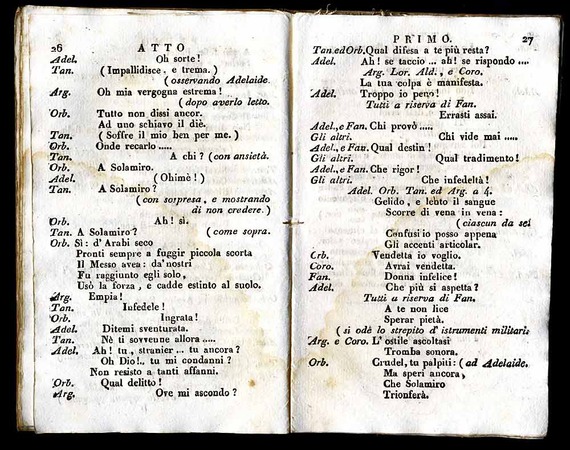 26 ATTO
Adel. Oh sorte!
Tan. (Impallidisce, e trema.)
(osservando Adelaide.
Arg. Oh mia vergogna estrema!
(dopo averlo letto.
Orb. Tutto non dissi ancor.
Ad uno schiavo il diè.
Tan. (Soffre il mio ben per me.)
Orb. Onde recarlo .....
Tan. A chi? (con ansietà.
Orb. A Solamiro.
Adel. (Ohimè!)
Tan. A Solamiro?
(con sorpresa, e mostrando
di non credere.)
Orb. Ah! sì.
Tan. A Solamiro? (come sopra.
Orb. Sì: d'Arabi seco
Pronti sempre a fuggir piccola scorta
Il Messo avea: da'nostri
Fu raggiunto egli solo,
Usò la forza, e cadde estinto al suolo.
Arg. Empia!
Tan. Infedele!
Orb. Ingrata!
Adel. Ditemi sventurata.
Tan. Nè ti sovvenne allora .....
Adel. Ah! tu, stranier ... tu ancora?
Oh Dio!.. tu mi condanni?
Non resisto a tanti affanni.
Orb. Qual delitto!
Arg. Ove mi ascondo?
PRIMO. 27
Tan.ed Orb. Qual difesa a te più resta?
Adel. Ah! se taccio ... ah! se rispondo ....
Arg. Lor. Ald., e Coro.
La tua colpa è manifesta.
Adel. Troppo io peno!
Tutti a riserva di Fan.
Errasti assai.
Adel., e Fan. Chi provò .....
Gli altri. Chi vide mai .....
Adel., e Fan. Qual destin!
Gli altri. Qual tradimento!
Adel., e Fan. Che rigor!
Gli altri. Che infedeltà!
Adel. Orb. Tan. ed Arg. a 4.
Gelido, e lento il sangue
Scorre di vena in vena:
(ciascun da sel
Confusi io posso appena
Gli accenti articolar.
Orb. Vendetta io voglio.
Coro. Avrai vendetta.
Fan. Donna infelice!
Adel. Che più si aspetta?
Tutti a riserva di Fan.
A te non lice
Sperar pietà.
(si odè lo strepito d'istrumenti militari:
Arg. e Coro. L'ostile ascoltasi
Tromba sonora.
Orb. Crudel, tu palpiti: (ad Adelaide.
Ma speri ancora,
Che Solamiro
Trionferà.